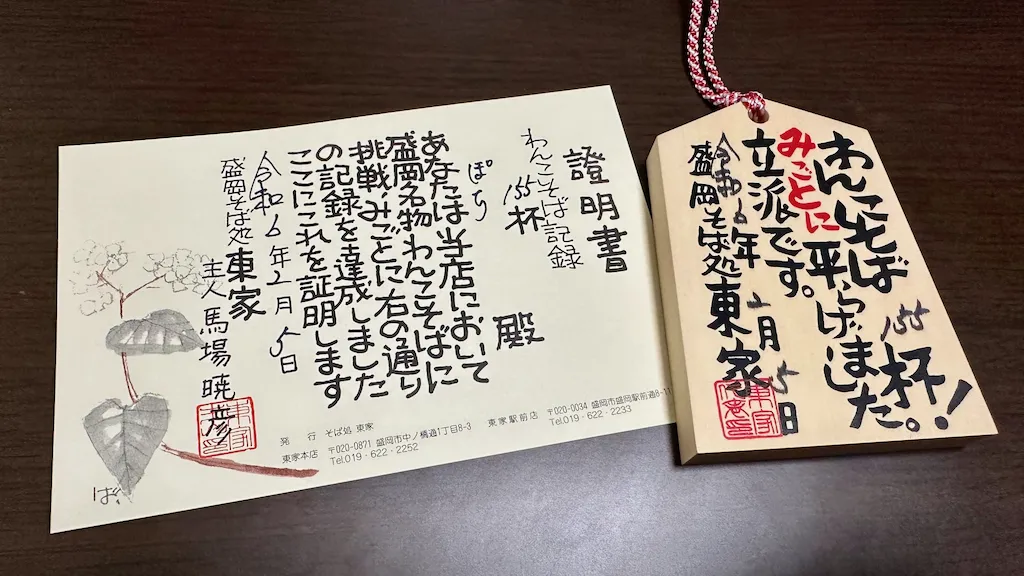 證明書
わんこそば記録
155杯
ぽち 殿
あなたは当店において
盛岡名物わんこそばに
挑戦・みごとに右の通り
の記録を達成しました
ここにこれを証明します
令和6年2月5日
盛岡そば処 東家
主人 馬場暁彦
ば
発 行 そば処 東家
東家本店 〒020-0871 盛岡市中ノ橋通1丁目8-3
Tel.019・622・2252
東家駅前店 〒020-0034 盛岡市盛岡駅前通8-11
Tel.019・622・2233
わんこそば 155杯!
みごとに平らげました。
立派です。
令和6年2月5日
盛岡そば処東家